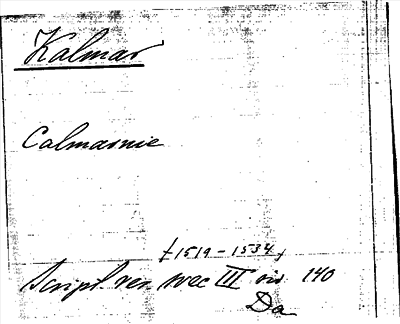 Kalmar
Calmarnie
(1519-1534)
Script. rer. svec III 140
Da